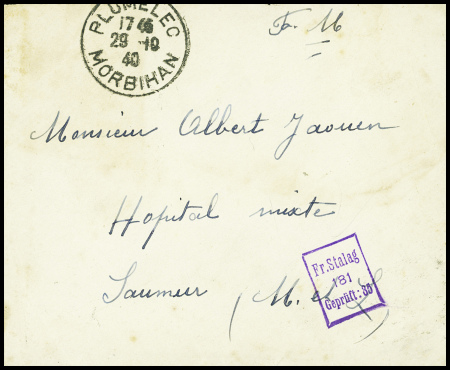 PLUMELEC
17 45
29 -10
40
MORBIHAN
F. M
Monsieur Albert Jaouen
Hopital mixte
Saumur (M. et L)
Fr. Stalag
181
Geprüft: 35